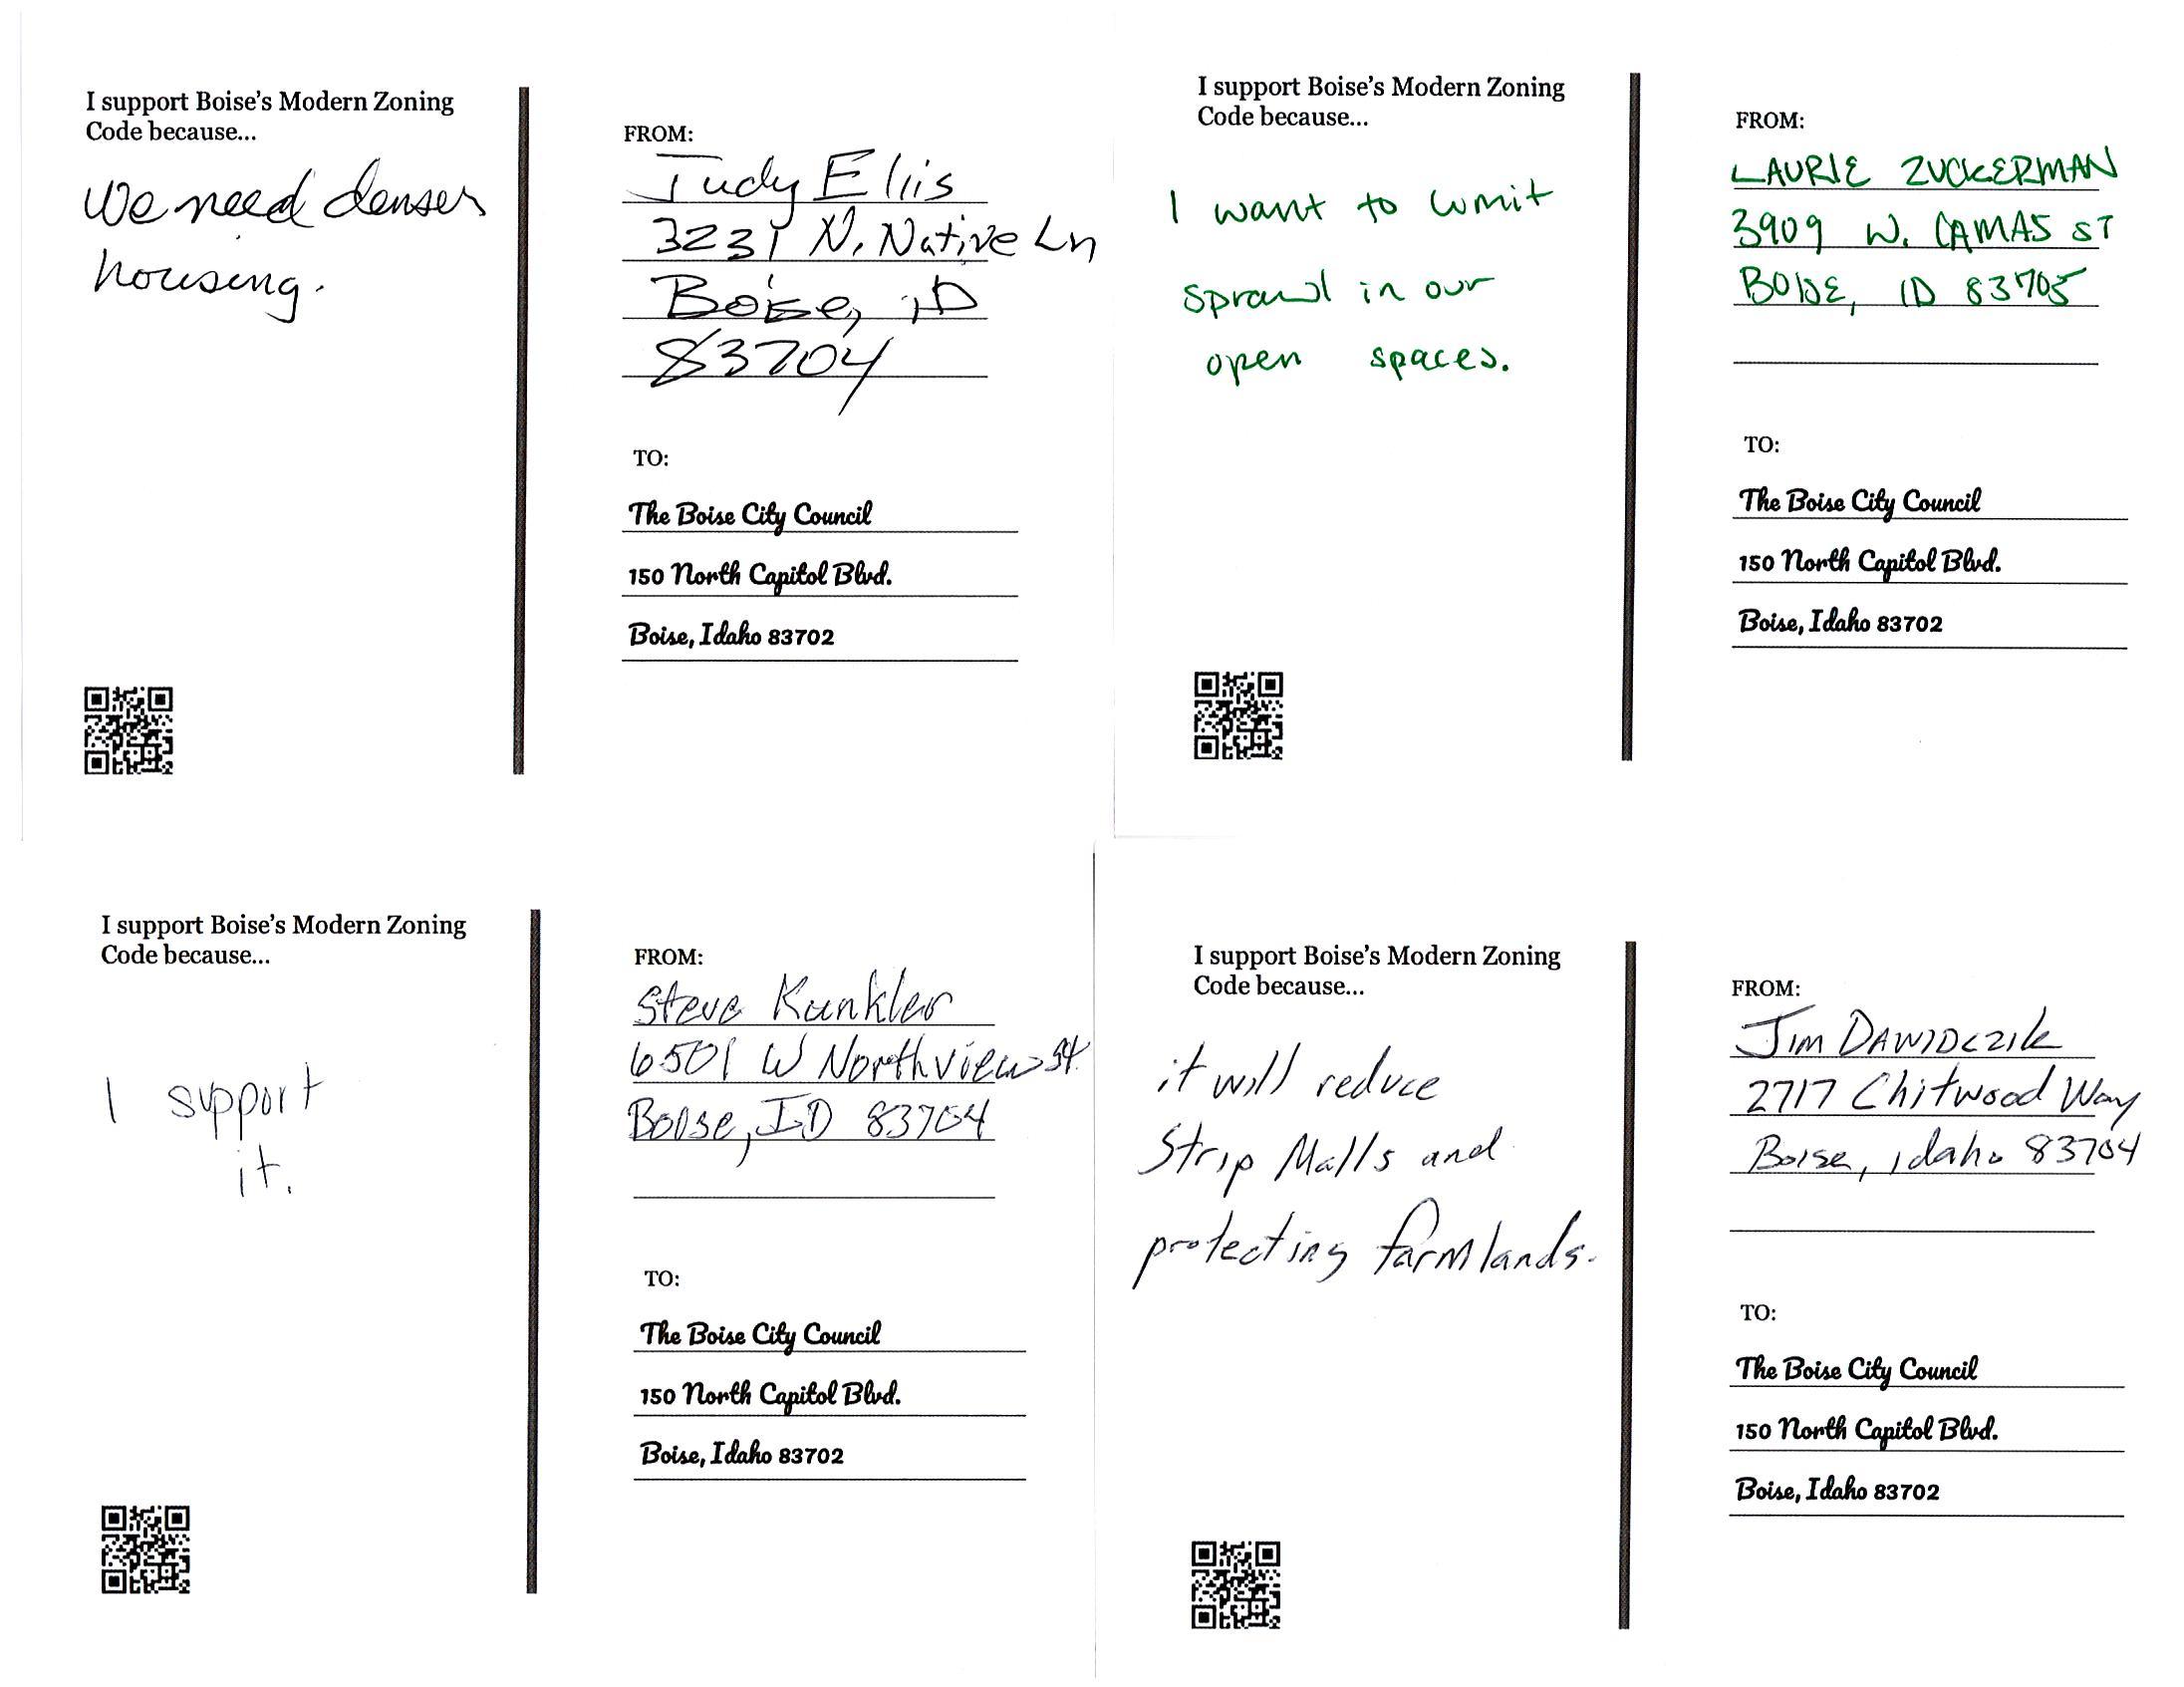 I support Boise's Modern Zoning
Code because...
We need denser
housing.
FROM:
Judy Ellis
3231 N. Native Ln
Boise, ID
83704
TO:
The Boise City Council
150 North Capitol Blvd.
Boise, Idaho 83702
I support Boise's Modern Zoning
Code because...
I want to limit
sprawl in our
open spaces.
FROM:
LAURIE ZUCKERMAN
3909 W. CAMAS ST
BOISE, ID 83705
TO:
The Boise City Council
150 North Capitol Blvd.
Boise, Idaho 83702
I support Boise's Modern Zoning
Code because...
I support
it.
FROM:
Steve Kunkler
6501 W Northview St.
Boise, ID 83704
TO:
The Boise City Council
150 North Capitol Blvd.
Boise, Idaho 83702
I support Boise's Modern Zoning
Code because...
it will reduce
Strip Malls and
protecting farmlands.
FROM:
Jim DAWIDCZIK
2717 Chitwood Way
Boise, idaho 83704
TO:
The Boise City Council
150 North Capitol Blvd.
Boise, Idaho 83702